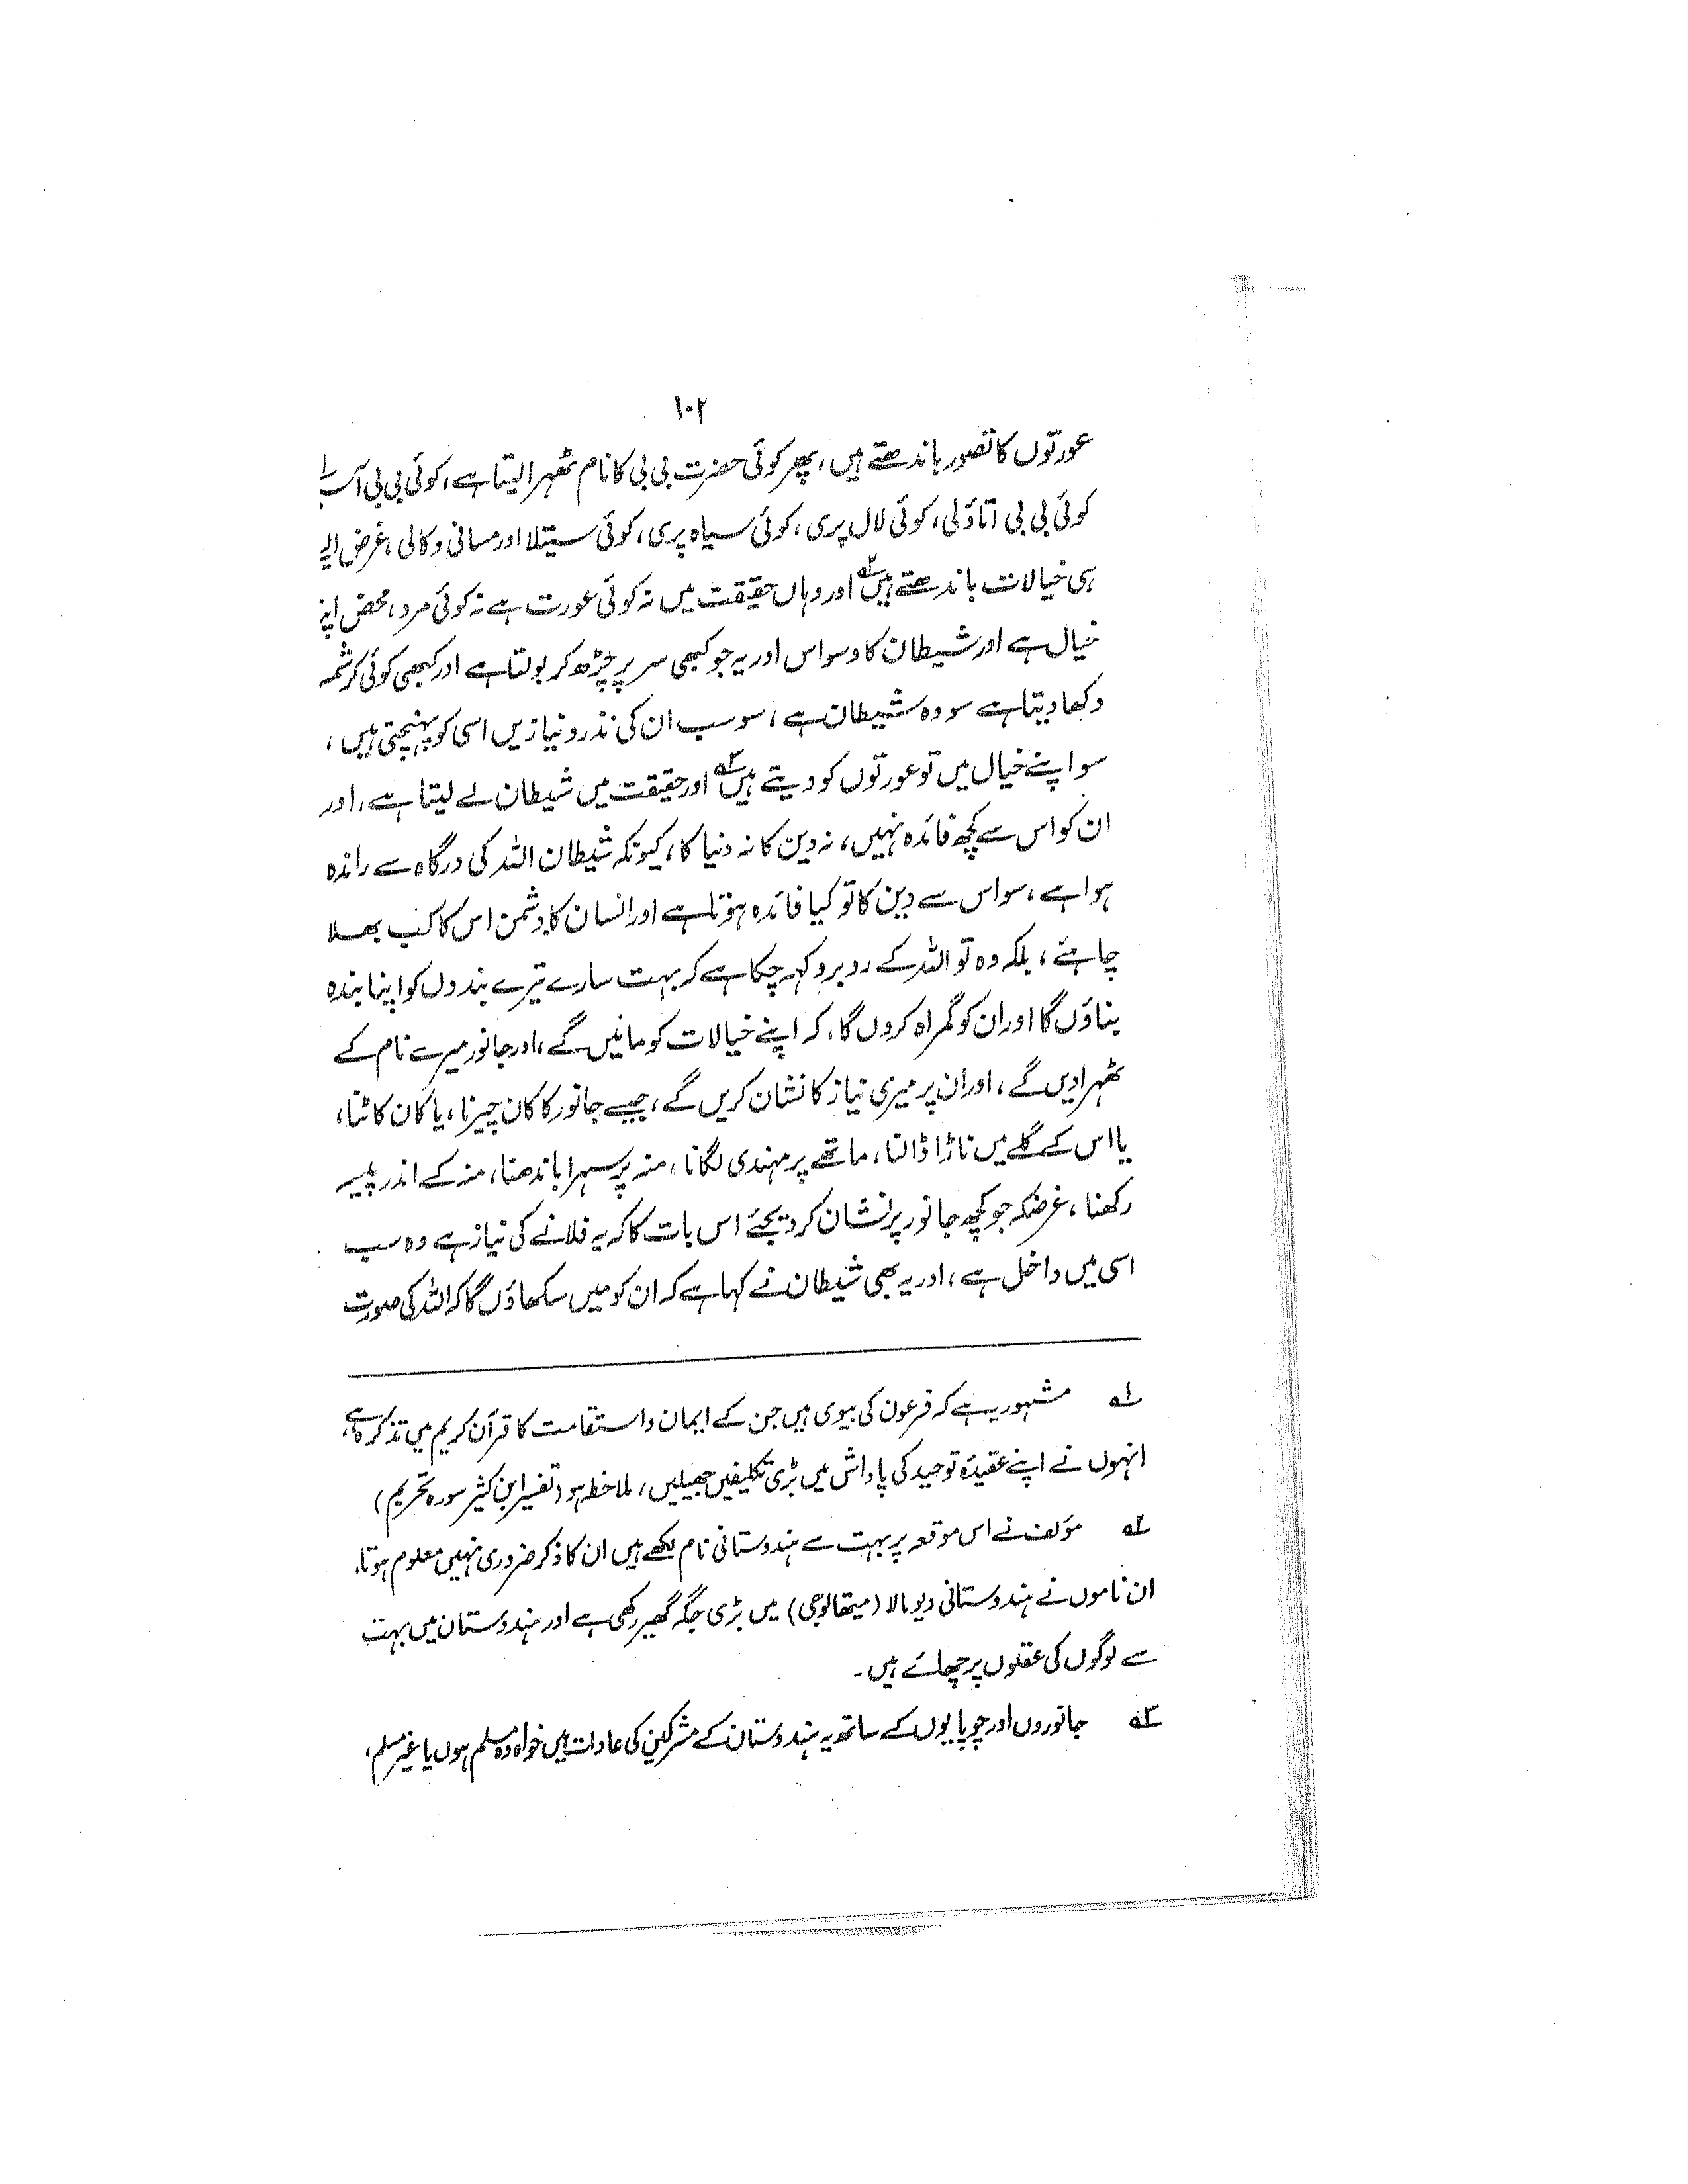 ۱۰۲
عورتوں کا تصور باندھتے ہیں، پھر کوئی حضرت بی بی کا نام ٹھہرا لیتا ہے، کوئی بی بی
کوئی بی بی اتاؤلی، کوئی لال پری، کوئی سیاہ پری، کوئی سیتلا اور مسانی و کالی، غرض
ہی خیالات باندھتے ہیں۲ اور وہاں حقیقت میں نہ کوئی عورت ہے نہ کوئی مرد، محض اپنے
خیال ہے اور شیطان کا وسواس اور یہ جو کبھی سر پر چڑھ کر بولتا ہے اور کبھی کوئی کرشمہ
دکھا دیتا ہے سو وہ شیطان ہے، سو سب ان کی نذر و نیازیں اسی کو پہنچتی ہیں،
سو اپنے خیال میں تو عورتوں کو دیتے ہیں۳ اور حقیقت میں شیطان لے لیتا ہے، اور
ان کو اس سے کچھ فائدہ نہیں، نہ دین کا نہ دنیا کا، کیونکہ شیطان اللہ کی درگاہ سے راندہ
ہوا ہے، سو اس سے دین کا تو کیا فائدہ ہوتا ہے اور انسان کا دشمن اس کا کب بھلا
چاہئے، بلکہ وہ تو اللہ کے روبرو کہہ چکا ہے کہ بہت سارے تیرے بندوں کو اپنا بندہ
بناؤں گا اور ان کو گمراہ کروں گا، کہ اپنے خیالات کو مانیں گے، اور جانور میرے نام کے
ٹھہرادیں گے، اور ان پر میری نیاز کا نشان کریں گے، جیسے جانور کا کان چیرنا، یا کان کاٹنا،
یا اس کے گلے میں ناڑا ڈالنا، ماتھے پر مہندی لگانا، منہ پر سہرا باندھنا، منہ کے اندر پیسہ
رکھنا، غرضکہ جو کچھ جانور پر نشان کر دیجئے اس بات کا کہ یہ فلانے کی نیاز ہے وہ سب
اسی میں داخل ہے، اور یہ بھی شیطان نے کہا ہے کہ ان کو میں سکھاؤں گا کہ اللہ کی صورت
۱ مشہور یہ ہے کہ فرعون کی بیوی ہیں جن کے ایمان و استقامت کا قرآن کریم میں تذکرہ ہے،
انہوں نے اپنے عقیدۂ توحید کی پاداش میں بڑی تکلیفیں جھیلیں، ملاحظہ ہو (تفسیر ابن کثیر سورہ تحریم)
۲ مؤلف نے اس موقعہ پر بہت سے ہندوستانی نام لکھے ہیں ان کا ذکر ضروری نہیں معلوم ہوتا،
ان ناموں نے ہندوستانی دیومالا (میتھالوجی) میں بڑی جگہ گھیر رکھی ہے اور ہندوستان میں بہت
سے لوگوں کی عقلوں پر چھائے ہیں۔
۳ جانوروں اور چوپایوں کے ساتھ یہ ہندوستان کے مشرکین کی عادات ہیں خواہ وہ مسلم ہوں یا غیر مسلم،